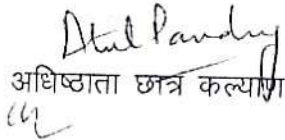 Atul Pandey
अधिष्ठाता छात्र कल्याण